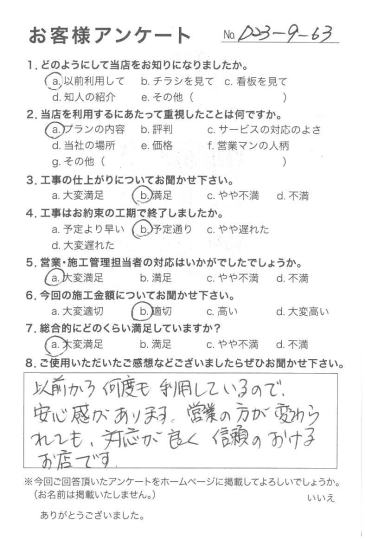 お客様アンケート No. D23-9-63
1. どのようにして当店をお知りになりましたか。
a. 以前利用して b. チラシを見て c. 看板を見て
d. 知人の紹介 e. その他（ ）
2. 当店を利用するにあたって重視したことは何ですか。
a. プランの内容 b. 評判 c. サービスの対応のよさ
d. 当社の場所 e. 価格 f. 営業マンの人柄
g. その他（ ）
3. 工事の仕上がりについてお聞かせ下さい。
a. 大変満足 b. 満足 c. やや不満 d. 不満
4. 工事はお約束の工期で終了しましたか。
a. 予定より早い b. 予定通り c. やや遅れた
d. 大変遅れた
5. 営業・施工管理担当者の対応はいかがでしたでしょうか。
a. 大変満足 b. 満足 c. やや不満 d. 不満
6. 今回の施工金額についてお聞かせ下さい。
a. 大変適切 b. 適切 c. 高い d. 大変高い
7. 総合的にどのくらい満足していますか？
a. 大変満足 b. 満足 c. やや不満 d. 不満
8. ご使用いただいたご感想などございましたらぜひお聞かせ下さい。
以前から何度も利用しているので、
安心感があります。営業の方が変わら
れても、対応が良く信頼のおける
お店です。
※今回ご回答頂いたアンケートをホームページに掲載してよろしいでしょうか。
（お名前は掲載いたしません。） いいえ
ありがとうございました。